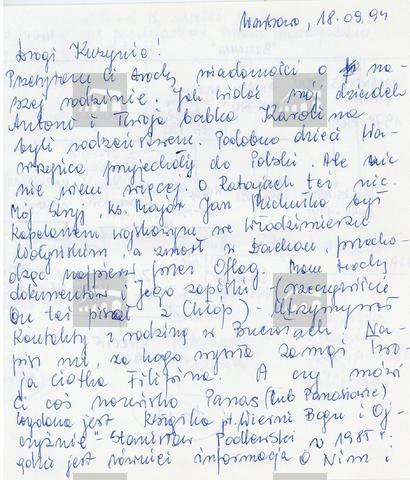 Warszawa, 18.09.94
Drogi Kuzynie!
Przesyłam Ci trochę wiadomości o na-
szej rodzinie. Jak widać mój dziadek
Antoni i Twoja babka Karolina
byli rodzeństwem. Podobno dzieci Wa-
wrzyńca przyjechały do Polski. Ale nic
nie wiem więcej. O Ratajach też nic.
Mój stryj, ks. Major Jan był
kapelanem wojskowym we Włodzimierzu
Wołyńskim, a zmarł w Dachau, przecho-
dząc najpierw przez Oflag. Mam trochę
dokumentów i Jego zapiski - (oczywiście
On też pisał z Chłop) - Utrzymywał
kontakty z rodziną w Buenos Aires. Na-
pisz mi, za kogo wyszła za mąż Two-
ja ciotka Filipina. A czy mówi
Ci coś nazwisko Panas (lub Panasowie)
wydana jest książka pt. Wierni Bogu i Oj-
czyźnie" - Stanisław Podlewski w 1985 r.
gdzie jest również informacja o Nim i